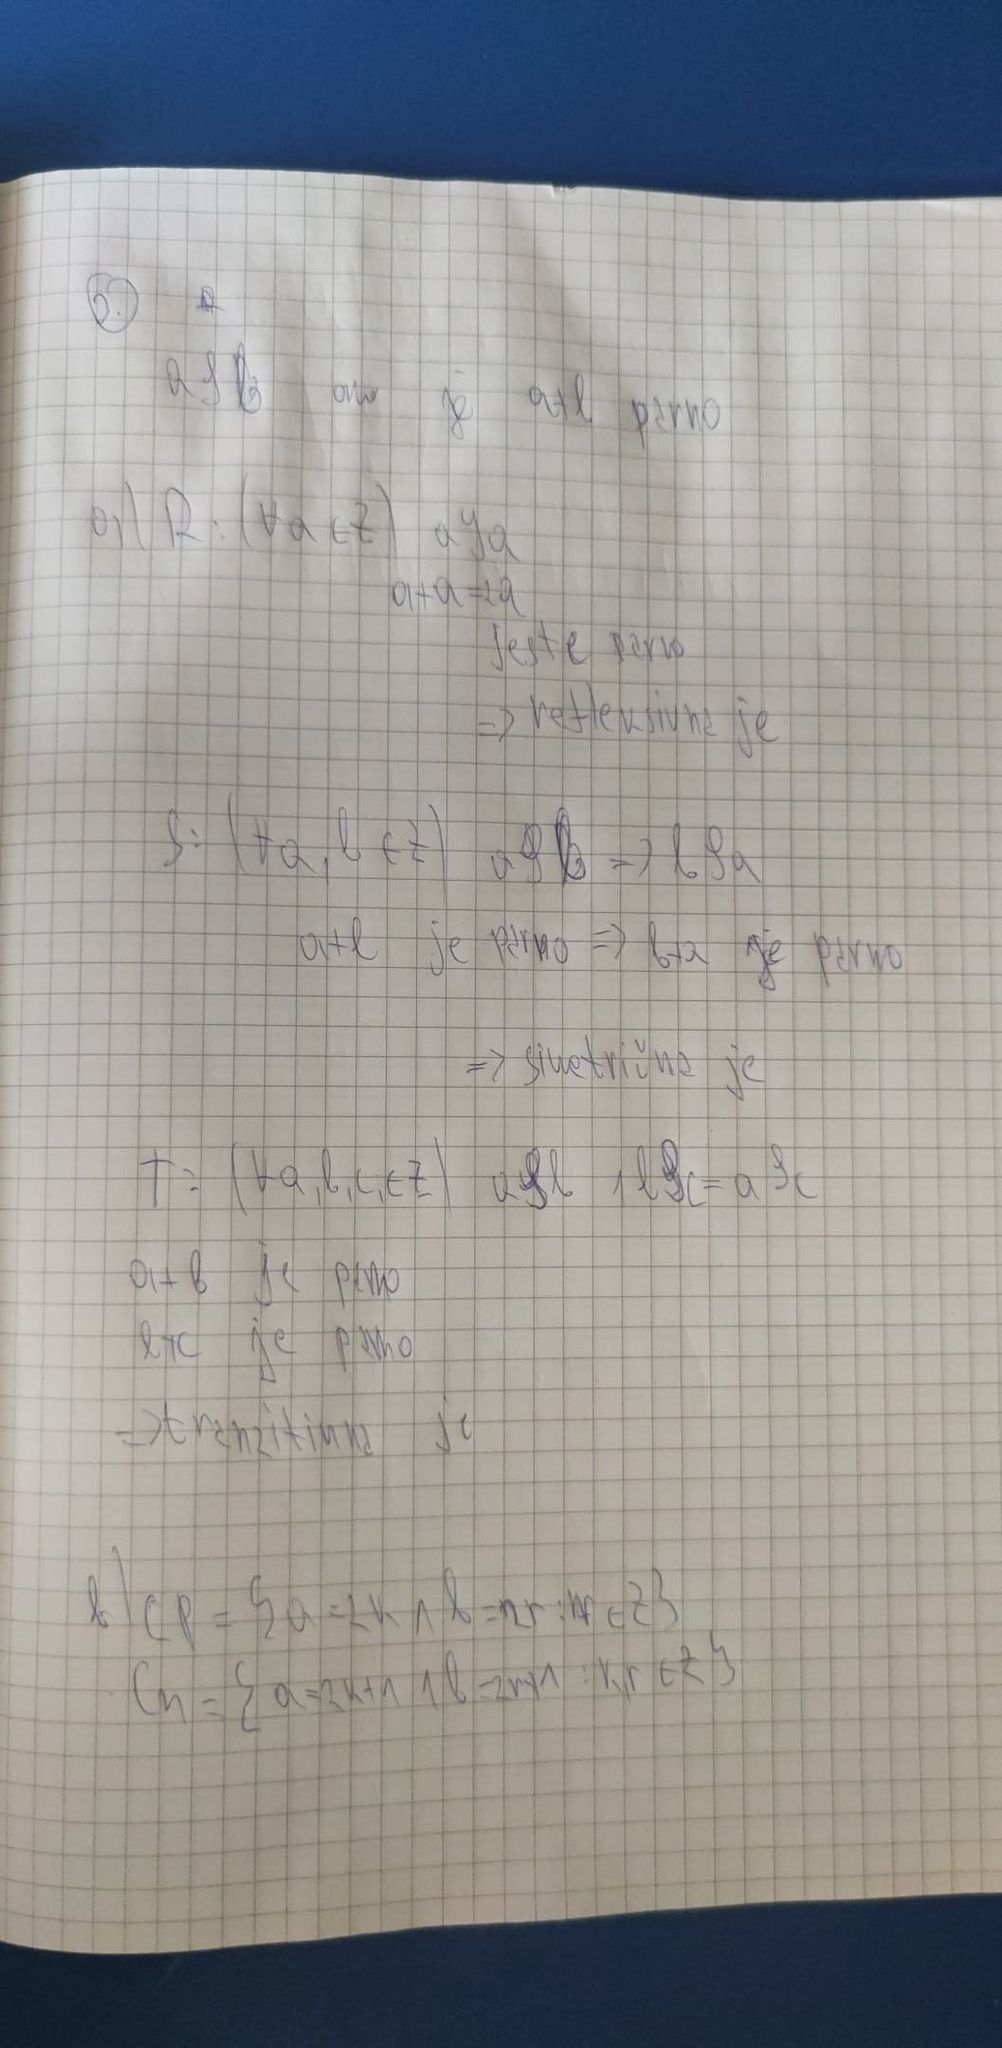 2.
a ρ b ako je a+b parno
a) R: (∀a∈Z) a ρ a
a+a=2a
jeste parno
=> refleksivna je
S: (∀a,b∈Z) a ρ b => b ρ a
a+b je parno => b+a je parno
=> simetrična je
T= (∀a,b,c,∈Z) a ρ b ∧ b ρ c = a ρ c
a+b je parno
b+c je parno
=> tranzitivna je
b) Cp = {a=2k ∧ b=2r : k,r∈Z}
Cn = {a=2k+1 ∧ b=2r+1 : k,r∈Z}